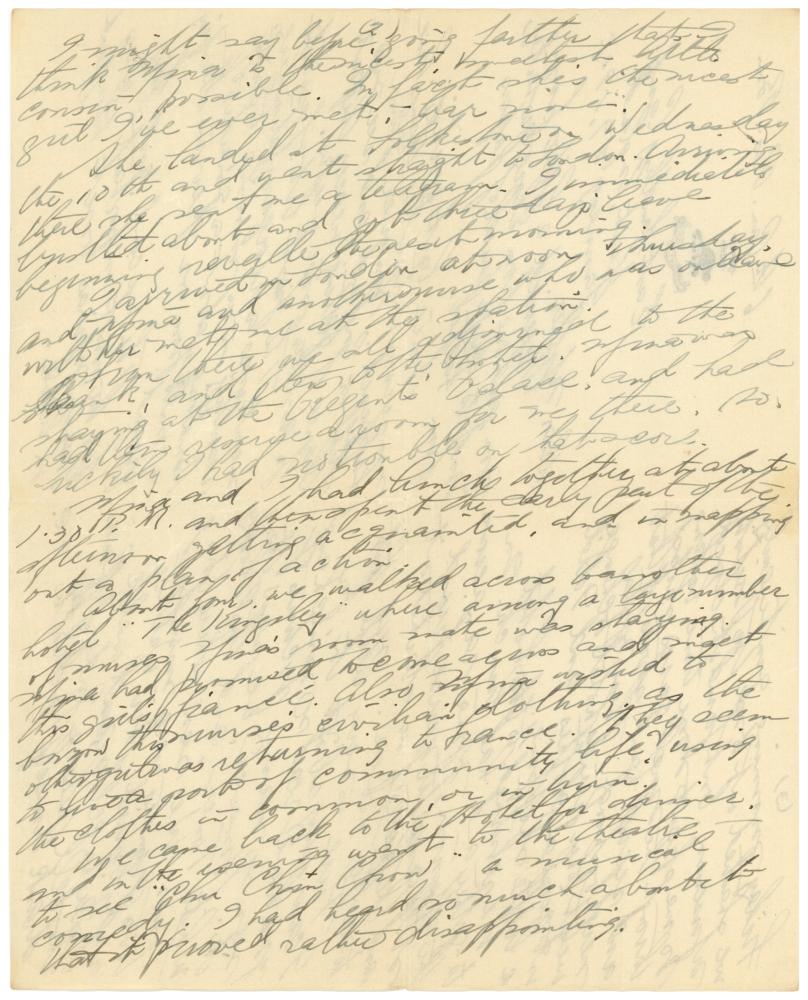 (2)
I might say before going farther that I
think Nina is the nicest, sweetest little
cousin possible. In fact she's the nicest
girl I've ever met, - bar none.
She landed at Folkestone on Wednesday
the 10th and went straight to London. Arriving
there she sent me a telegram. I immediately
hustled about and got three days leave
beginning reveille the next morning.
I arrived in London at noon Thursday
and Nina and another nurse who was on leave
with her met me at the station.
From there we all adjourned to the
Bank, and then to the hotel. Nina was
staying at the Regent's Palace, and had
had them reserve a room for me there. So
luckily I had no trouble on that score.
Nina and I had lunch together at about
1.30 P.M. and then spent the early part of the
afternoon getting acquainted, and in mapping
out a plan of action.
About four, we walked across to another
hotel "The Kingsley" where among a large number
of nurses Nina's room mate was staying.
Nina had promised to come across and meet
this girl's fiancé. Also Nina wished to
borrow this nurse's civilian clothing, as the
other girl was returning to France. They seem
to live a sort of community life, using
the clothes in common, or in turn.
We came back to the Hotel for dinner.
and in the evening went to the theatre
to see "Chu Chin Chow" a musical
comedy. I had heard so much about it
that it proved rather disappointing.